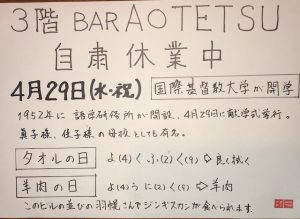 3階 BAR AOTETSU
自粛休業中
4月29日(水・祝) 国際基督教大学が開学
1952年に語学研修所が開設、4月29日に献学式挙行。
真子様、佳子様の母校としても有名。
タオルの日 よ(4)く ふ(2)く(9) ⇨ 良く拭く
羊肉の日 よ(4)うに(2)く(9) ⇨ 羊肉
このビルの並びの羽幌さんでジンギスカンが食べられます。